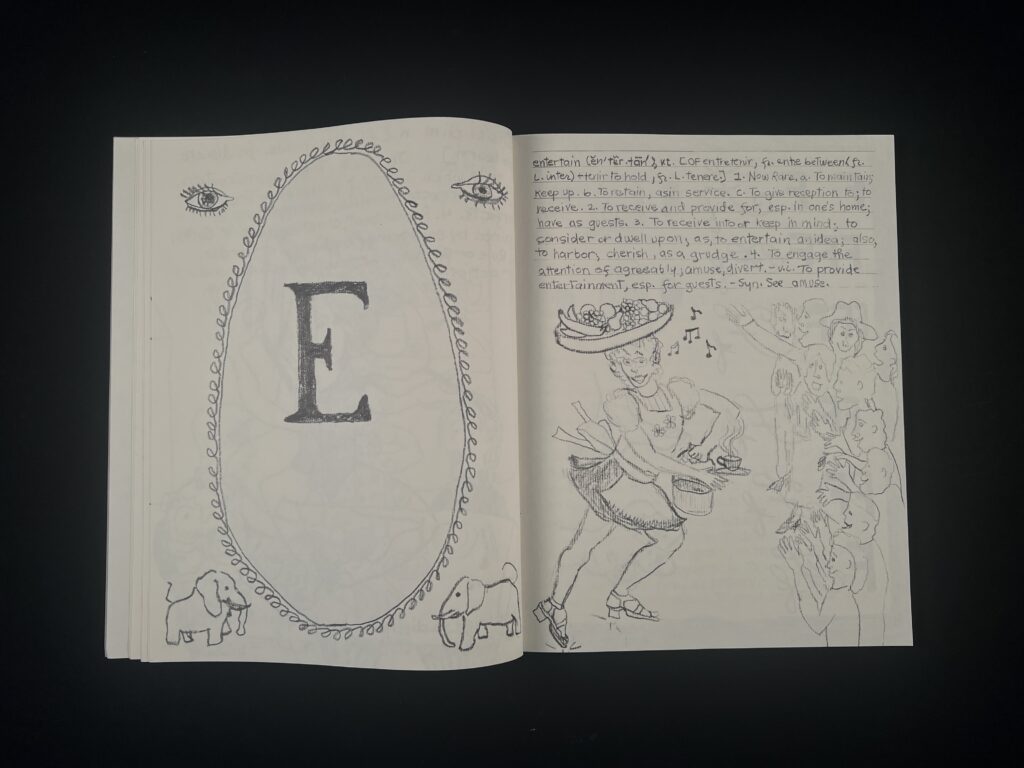 E
entertain (ĕn'tẽr·tān'), vt. [OF entretenir, fr. entre between (fr.
L. inter) + tenir to hold, fr. L. tenere.] 1. Now Rare. a. To maintain;
keep up. b. To retain, as in service. c. To give reception to; to
receive. 2. To receive and provide for, esp. in one's home;
have as guests. 3. To receive into or keep in mind; to
consider or dwell upon; as, to entertain an idea; also,
to harbor; cherish, as a grudge. 4. To engage the
attention of agreeably; amuse, divert. - v.i. To provide
entertainment, esp. for guests. - Syn. See amuse.